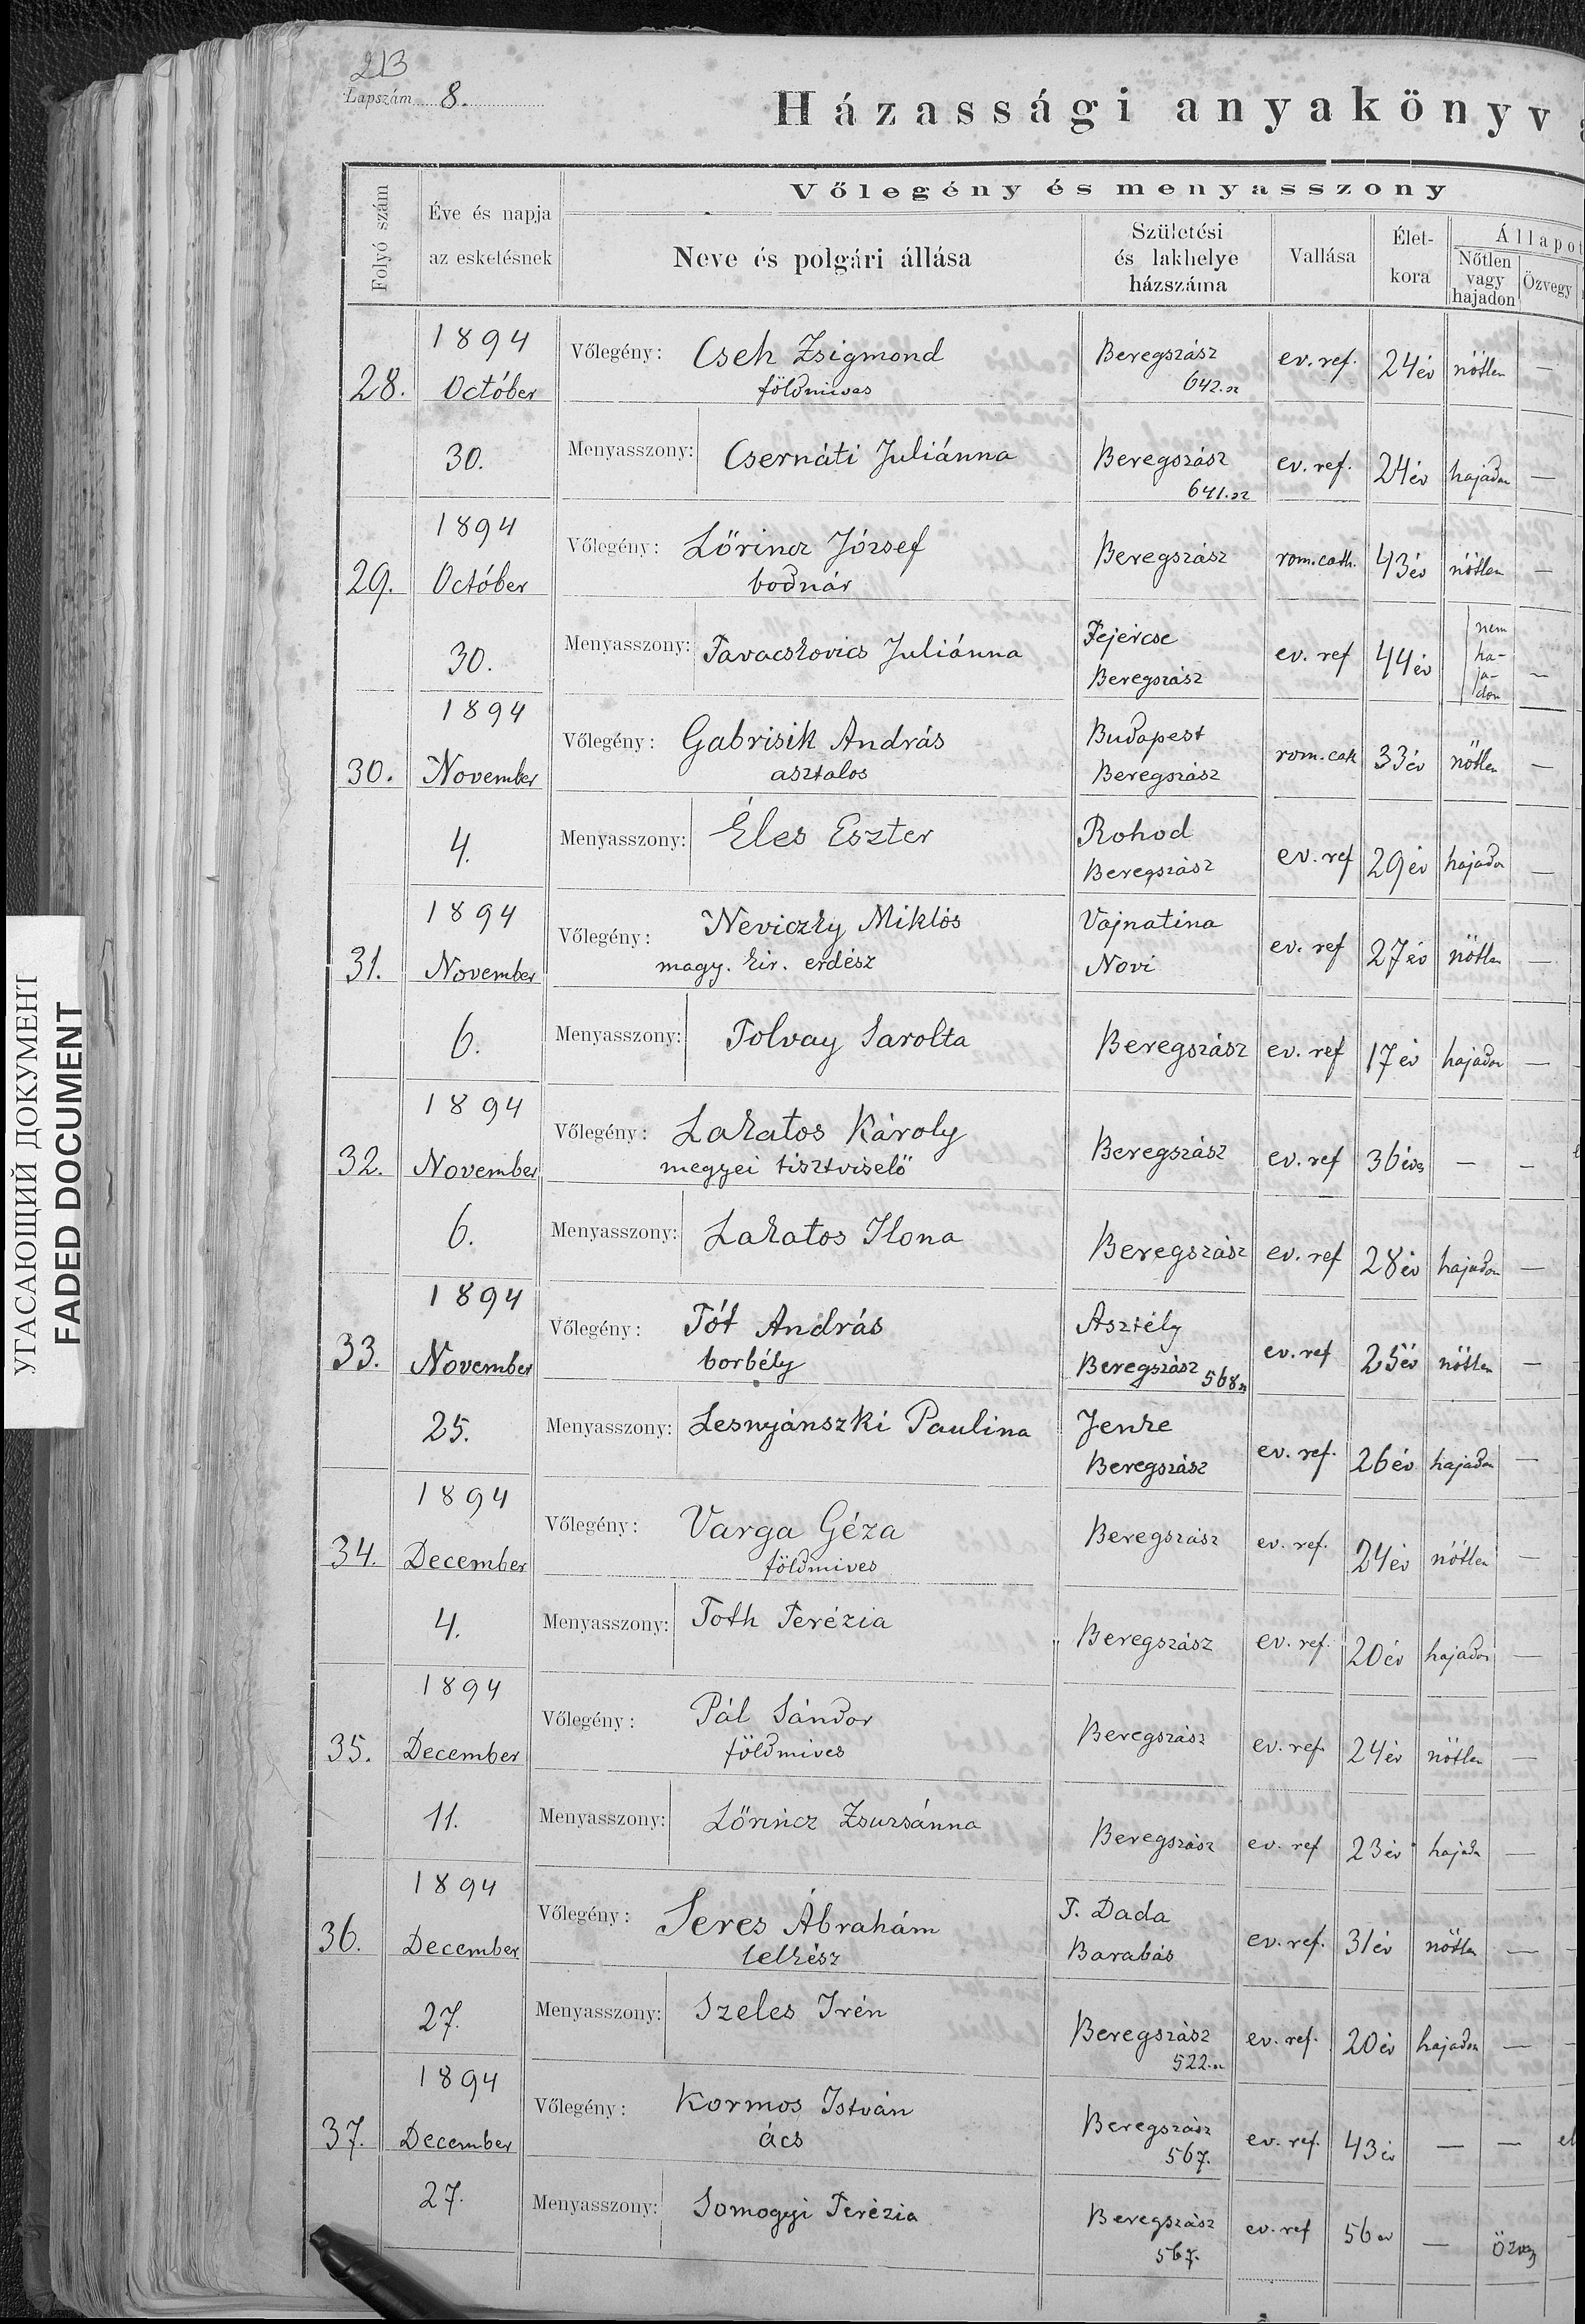 213
Lapszám 8.
Házassági anyakönyv
Folyó szám
Éve és napja
az esketésnek
Vőlegény és menyasszony
Neve és polgári állása
Születési
és lakhelye
házszáma
Vallása
Élet-
kora
Állapot
Nőtlen
vagy
hajadon
Özvegy
28.
1894
Október
30.
Vőlegény: Cseh Zsigmond
földmives
Beregszász
642. sz
ev. ref. 24 év nőtlen —
Menyasszony: Csernáti Juliánna
Beregszász
641. sz
ev. ref. 24 év hajadon —
29.
1894
Octóber
30.
Vőlegény: Lőrincz József
bodnár
Beregszász
rom. cath. 43 év nőtlen —
Menyasszony: Tavacskovics Juliánna
Fejércse
Beregszász
ev. ref 44 év
nem
ha-
ja-
don
—
30.
1894
November
4.
Vőlegény: Gabrisik András
asztalos
Budapest
Beregszász
rom. cath 33 év nőtlen —
Menyasszony: Éles Eszter
Rohod
Beregszász
ev. ref 29 év hajadon —
31.
1894
November
6.
Vőlegény: Neviczky Miklós
magy. kir. erdész
Vajnatina
Novi
ev. ref 27 év nőtlen —
Menyasszony: Tolvay Sarolta
Beregszász ev. ref 17 év hajadon —
32.
1894
November
6.
Vőlegény: Lakatos Károly
megyei tisztviselő
Beregszász ev. ref 36 éves — —
Menyasszony: Lakatos Ilona
Beregszász ev. ref 28 év hajadon —
33.
1894
November
25.
Vőlegény: Tót András
borbély
Asztély
Beregszász 568 sz
ev. ref 25 év nőtlen —
Menyasszony: Lesnyánszki Paulina
Jenke
Beregszász
ev. ref. 26 év hajadon —
34.
1894
December
4.
Vőlegény: Varga Géza
földmives
Beregszász ev. ref. 24 év nőtlen —
Menyasszony: Toth Terézia
Beregszász ev. ref. 20 év hajadon —
35.
1894
December
11.
Vőlegény: Pál Sándor
földmives
Beregszász ev. ref. 24 év nőtlen —
Menyasszony: Lőrincz Zsuzsánna
Beregszász ev. ref 23 év hajadon —
36.
1894
December
27.
Vőlegény: Seres Ábrahám
lelkész
T. Dada
Barabás
ev. ref. 31 év nőtlen —
Menyasszony: Szeles Irén
Beregszász
522. sz
ev. ref. 20 év hajadon —
37.
1894
December
27.
Vőlegény: Kormos István
ács
Beregszász
567.
ev. ref. 43 év — — el
Menyasszony: Somogyi Terézia
Beregszász
567.
ev. ref 56 év — özv
УГАСАЮЩИЙ ДОКУМЕНТ
FADED DOCUMENT